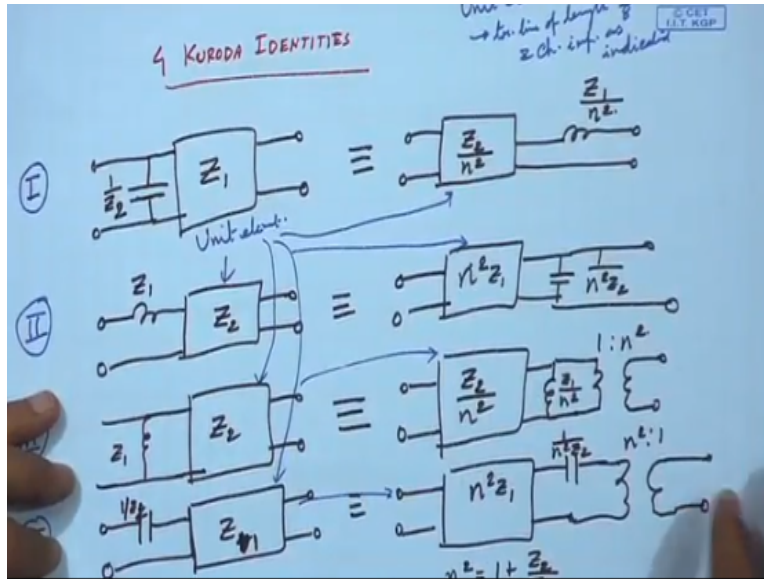 → tr. line of length λ/8
& Ch. imp. as
indicated
© CET
I.I.T. KGP
4 KURODA IDENTITIES
I
1/Z2
Z1
≡
Z2/n²
Z1/n²
Unit elemt.
II
Z1
Z2
≡
n²Z1
1/n²Z2
Z1
Z2
≡
Z2/n²
Z1/n²
1:n²
1/Z2
Z1
≡
n²Z1
1/n²Z2
n²:1
n² = 1 + Z2